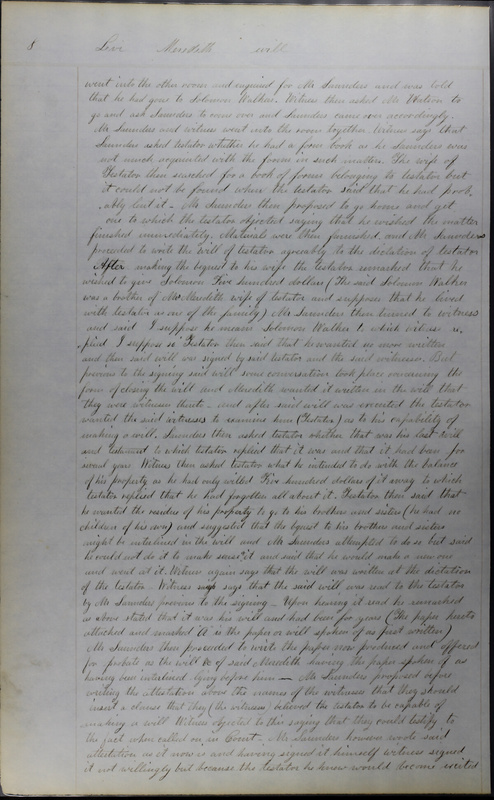 8 Levi Meredith will
went into the other room and enquired for Mr Saunders and was told
that he had gone to Solomon Walkers. Witness then asked Mr Watson to
go and ask Saunders to come over and Saunders came over accordingly.
Mr Saunders and witness went into the room together. Witness says that
Saunders asked testator whether he had a form book as he Saunders was
not much acquainted with the forms in such matters. The wife of
Testator then searched for a book of forms belonging to testator but
it could not be found when the testator said that he had prob
ably lent it – Mr Saunders then proposed to go home and get
one to which the testator objected saying that he wished the matter
finished immediately. Materials were then furnished and Mr Saunders
proceeded to write the will of testator agreeably to the dictation of testator
After making the bequest to his wife the testator remarked that he
wished to give Solomon Five hundred dollars (The said Solomon Walker
was a brother of Mrs Meredith wife of testator and suppose that he lived
with testator as one of the family) Mr Saunders then turned to witness
and said I suppose he means Solomon Walker to which witness re
plied I suppose so Testator then said that he wanted no more written
and then said will was signed by said testator and the said witnesses. But
previous to the signing said will some conversation took place concerning the
form of closing the will and Meredith wanted it written in the will that
they were witnesses thereto – and after said will was executed the testator
wanted the said witnesses to examine him (Testator) as to his capability of
making a will. Saunders then asked testator whether that was his last will
and Testament to which testator replied that it was and that it had been for
several years. Witness then asked testator what he intended to do with the balance
of his property as he had only willed Five hundred dollars of it away to which
testator replied that he had forgotten all about it. Testator then said that
he wanted the residue of his property to go to his brothers and sisters (he had no
children of his own) and suggested that the bequest to his brothers and sisters
might be interlined in the will and Mr Saunders attempted to do so but said
he could not do it to make sense of it and said that he would make a new one
and went at it. Witness again says that the will was written at the dictation
of the testator – Witness says that the said will was read to the testator
by Mr Saunders previous to the signing – Upon hearing it read he remarked
as above stated that it was his will and had been for years (The paper hereto
attached and marked A is the paper or will spoken of as first written)
Mr Saunders then proceeded to write the paper now produced and offered
for probate as the will &c of said Meredith having the paper spoken of as
having been interlined lying before him — Mr Saunders proposed before
writing the attestation above the names of the witnesses that they should
insert a clause that they (the witnesses) believed the testator to be capable of
making a will Witness objected to this saying that they could testify to
the fact when called on in Court – Mr Saunders however wrote said
attestation as it now is and having signed it himself witness signed
it not willingly but because the testator he knew would become excited